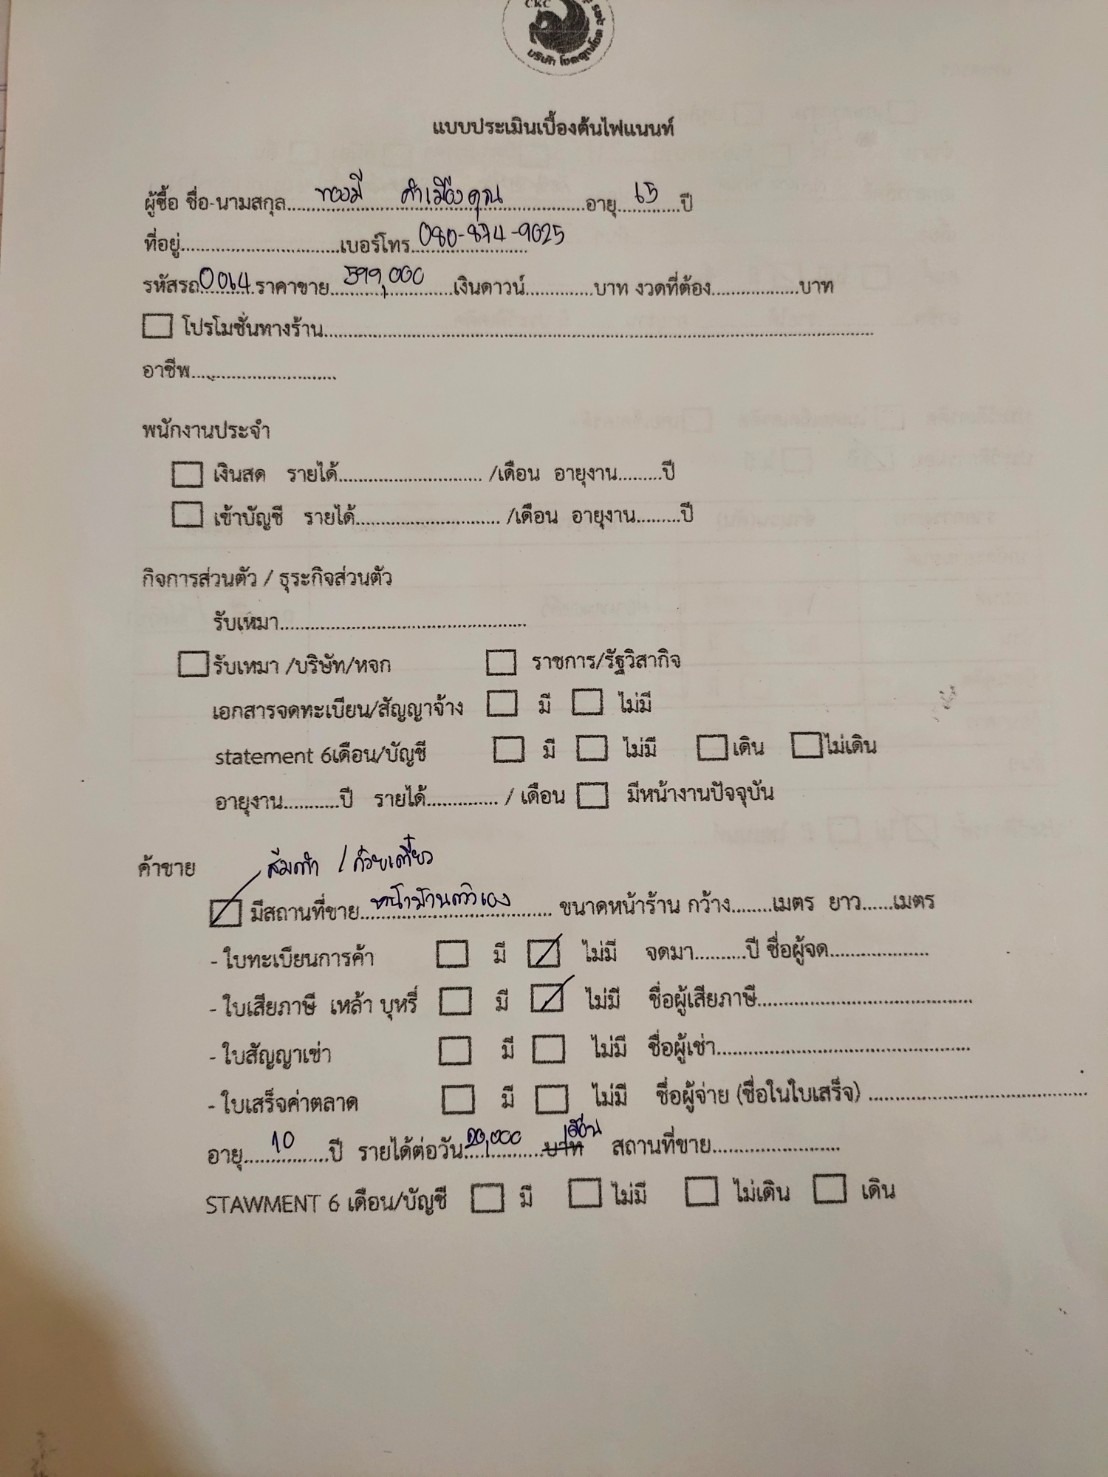 CKC
บริษัท โชคคูณโชค
แบบประเมินเบื้องต้นไฟแนนท์
ผู้ซื้อ ชื่อ-นามสกุล...ทองมี คำเมืองคุณ...อายุ...65...ปี
ที่อยู่...เบอร์โทร...080-874-9025
รหัสรถ 0064 ราคาขาย...599,000...เงินดาวน์...บาท งวดที่ต้อง...บาท
☐ โปรโมชั่นทางร้าน...
อาชีพ...
พนักงานประจำ
☐ เงินสด รายได้.../เดือน อายุงาน...ปี
☐ เข้าบัญชี รายได้.../เดือน อายุงาน...ปี
กิจการส่วนตัว / ธุระกิจส่วนตัว
รับเหมา...
☐ รับเหมา /บริษัท/หจก ☐ ราชการ/รัฐวิสากิจ
เอกสารจดทะเบียน/สัญญาจ้าง ☐ มี ☐ ไม่มี
statement 6เดือน/บัญชี ☐ มี ☐ ไม่มี ☐ เดิน ☐ ไม่เดิน
อายุงาน...ปี รายได้.../ เดือน ☐ มีหน้างานปัจจุบัน
ค้าขาย ส้มตำ / ก๋วยเตี๋ยว
☑ มีสถานที่ขาย...หน้าบ้านตัวเอง... ขนาดหน้าร้าน กว้าง...เมตร ยาว...เมตร
- ใบทะเบียนการค้า ☐ มี ☑ ไม่มี จดมา...ปี ชื่อผู้จด...
- ใบเสียภาษี เหล้า บุหรี่ ☐ มี ☑ ไม่มี ชื่อผู้เสียภาษี...
- ใบสัญญาเข่า ☐ มี ☐ ไม่มี ชื่อผู้เช่า...
- ใบเสร็จค่าตลาด ☐ มี ☐ ไม่มี ชื่อผู้จ่าย (ชื่อในใบเสร็จ) ...
อายุ...10...ปี รายได้ต่อวัน...20,000...บาท เดือน สถานที่ขาย...
STAWMENT 6 เดือน/บัญชี ☐ มี ☐ ไม่มี ☐ ไม่เดิน ☐ เดิน